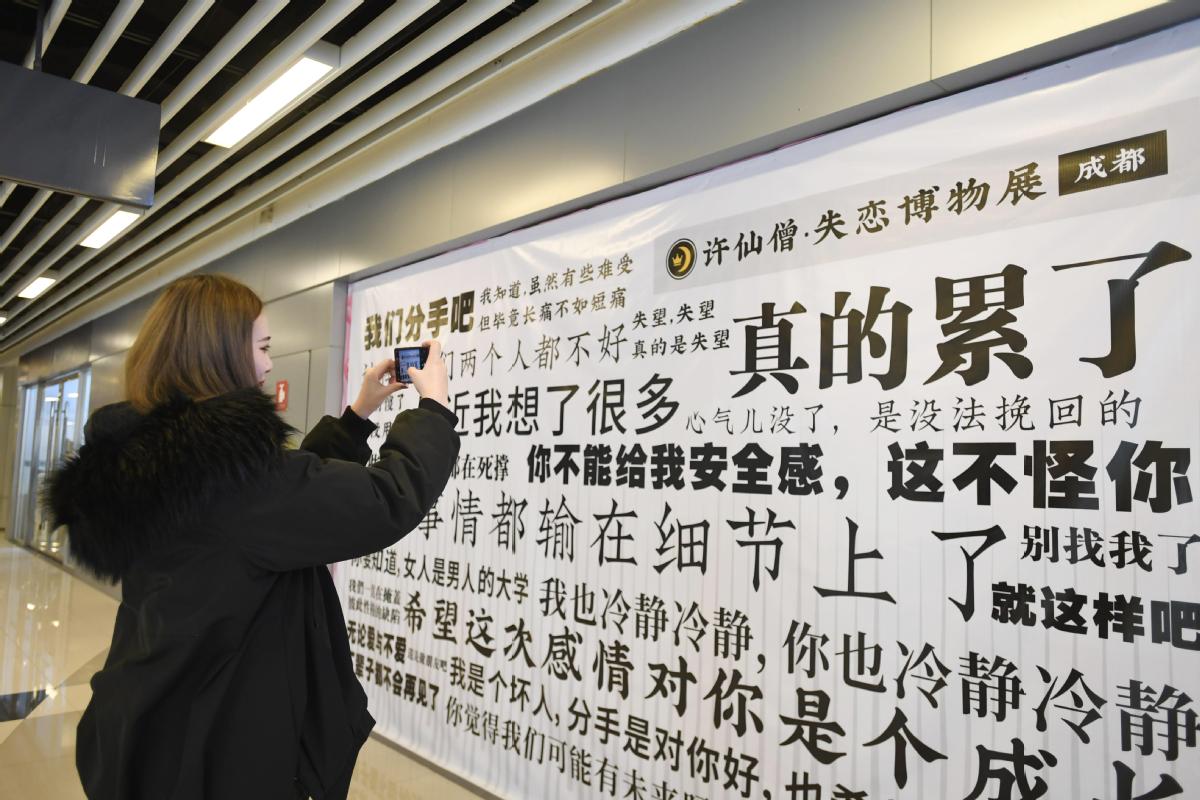 许仙僧·失恋博物展 成都
我们分手吧
我知道,虽然有些难受
但毕竟长痛不如短痛
们两个人都不好
失望,失望
真的是失望
真的累了
近我想了很多
心气儿没了,是没法挽回的
都在死撑
你不能给我安全感,这不怪你
事情都输在细节上了
别找我了
你要知道,女人是男人的大学
我也冷静冷静,你也冷静冷静
就这样吧
我們一直在掩盖
彼此性格的缺陷
希望这次感情对你是个成长
无论爱与不爱
还是做朋友吧
辈子都不会再见了
我是个坏人,分手是对你好,也
你觉得我们可能有未来